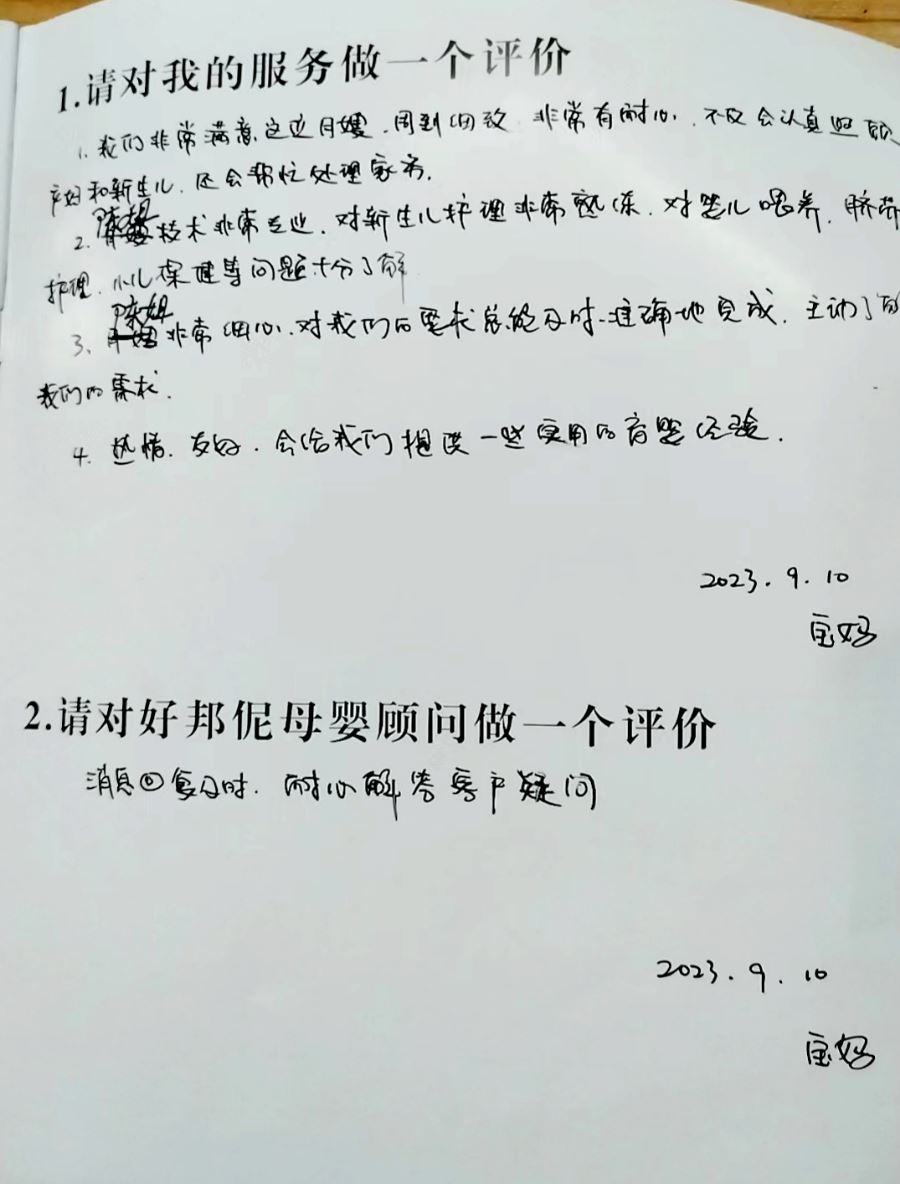 1.请对我的服务做一个评价
1. 我们非常满意这位月嫂,周到细致,非常有耐心,不仅会认真照顾
产妇和新生儿,还会帮忙处理家务.
2. 陈姐技术非常专业,对新生儿护理非常熟练,对婴儿喂养,脐带
护理,小儿保健等问题十分了解
3、陈姐非常细心,对我们的要求总能及时、准确地完成,主动了解
我们的需求.
4. 热情、友好,会给我们提供一些实用的育婴经验.
2023.9.10
宝妈
2.请对好邦伲母婴顾问做一个评价
消息回复及时,耐心解答客户疑问
2023.9.10
宝妈